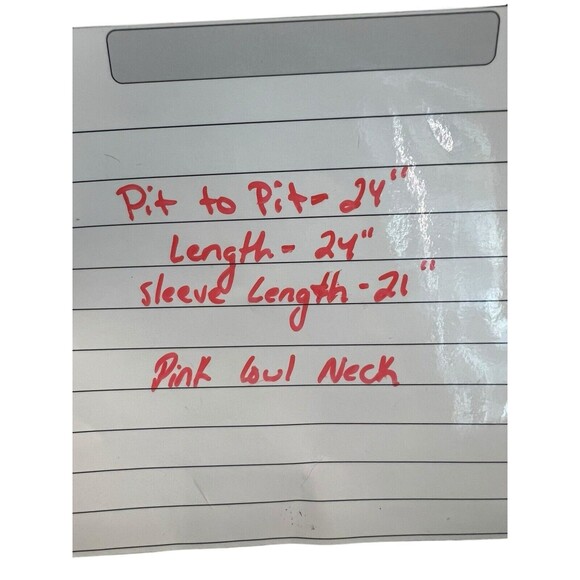 Pit to Pit- 24"
Length- 24"
sleeve Length-21"
Pink Cowl Neck